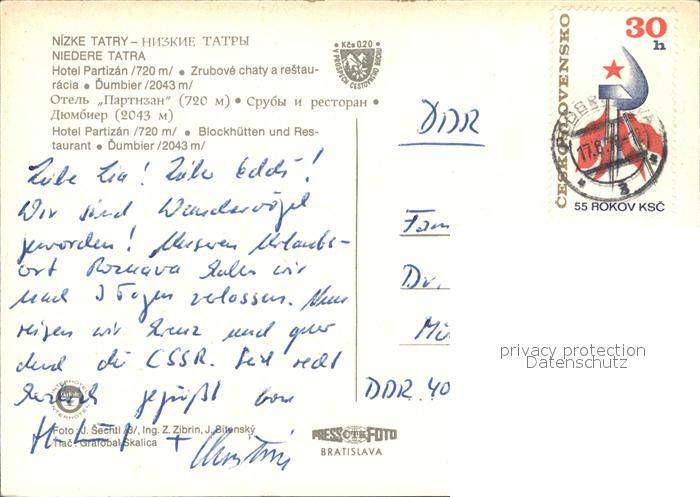 NÍZKE TATRY – НИЗКИЕ ТАТРЫ
NIEDERE TATRA
Hotel Partizán /720 m/ • Zrubové chaty a reštau-
rácia • Ďumbier /2043 m/
Отель „Партизан" (720 м) • Срубы и ресторан •
Дюмбиер (2043 м)
Hotel Partizán /720 m/ • Blockhütten und Res-
taurant • Ďumbier /2043 m/
Kčs 0,20
V PROSPECH CESTOVNÉHO RUCHU
ČESKOSLOVENSKO
30 h
55 ROKOV KSČ
17.8.
3
Liebe Lia! Lieber Eddi!
Wir sind Wandervögel
geworden! Unseren Urlaubs-
ort Roznava haben wir
nach 3 Tagen verlassen. Nun
reisen wir kreuz und quer
durch die CSSR. Seid recht
herzlich gegrüßt von
+
DDR
Fam
Dr.
DDR 40
privacy protection
Datenschutz
INTERHOTEL
Foto: J. Šechtl /3/, Ing. Z. Zibrin, J. Sitenský
Tlač: Grafobal Skalica
PRESSFOTO
ČTK
BRATISLAVA